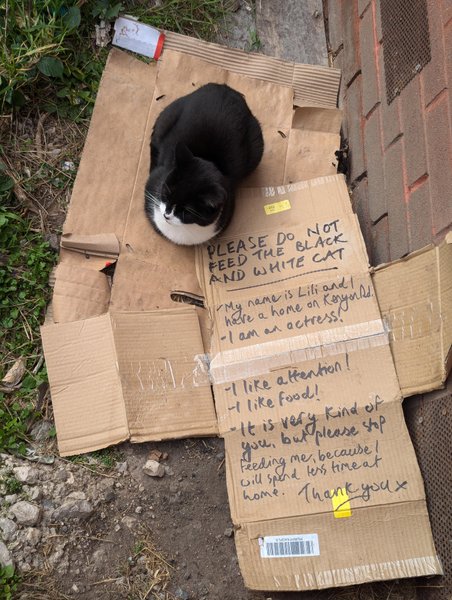 PLEASE DO NOT
FEED THE BLACK
AND WHITE CAT
- My name is Lili and I
have a home on Kenyon Rd.
- I am an actress!
- I like attention!
- I like food!
- It is very kind of
you, but please stop
feeding me, because I
will spend less time at
home. Thank you x